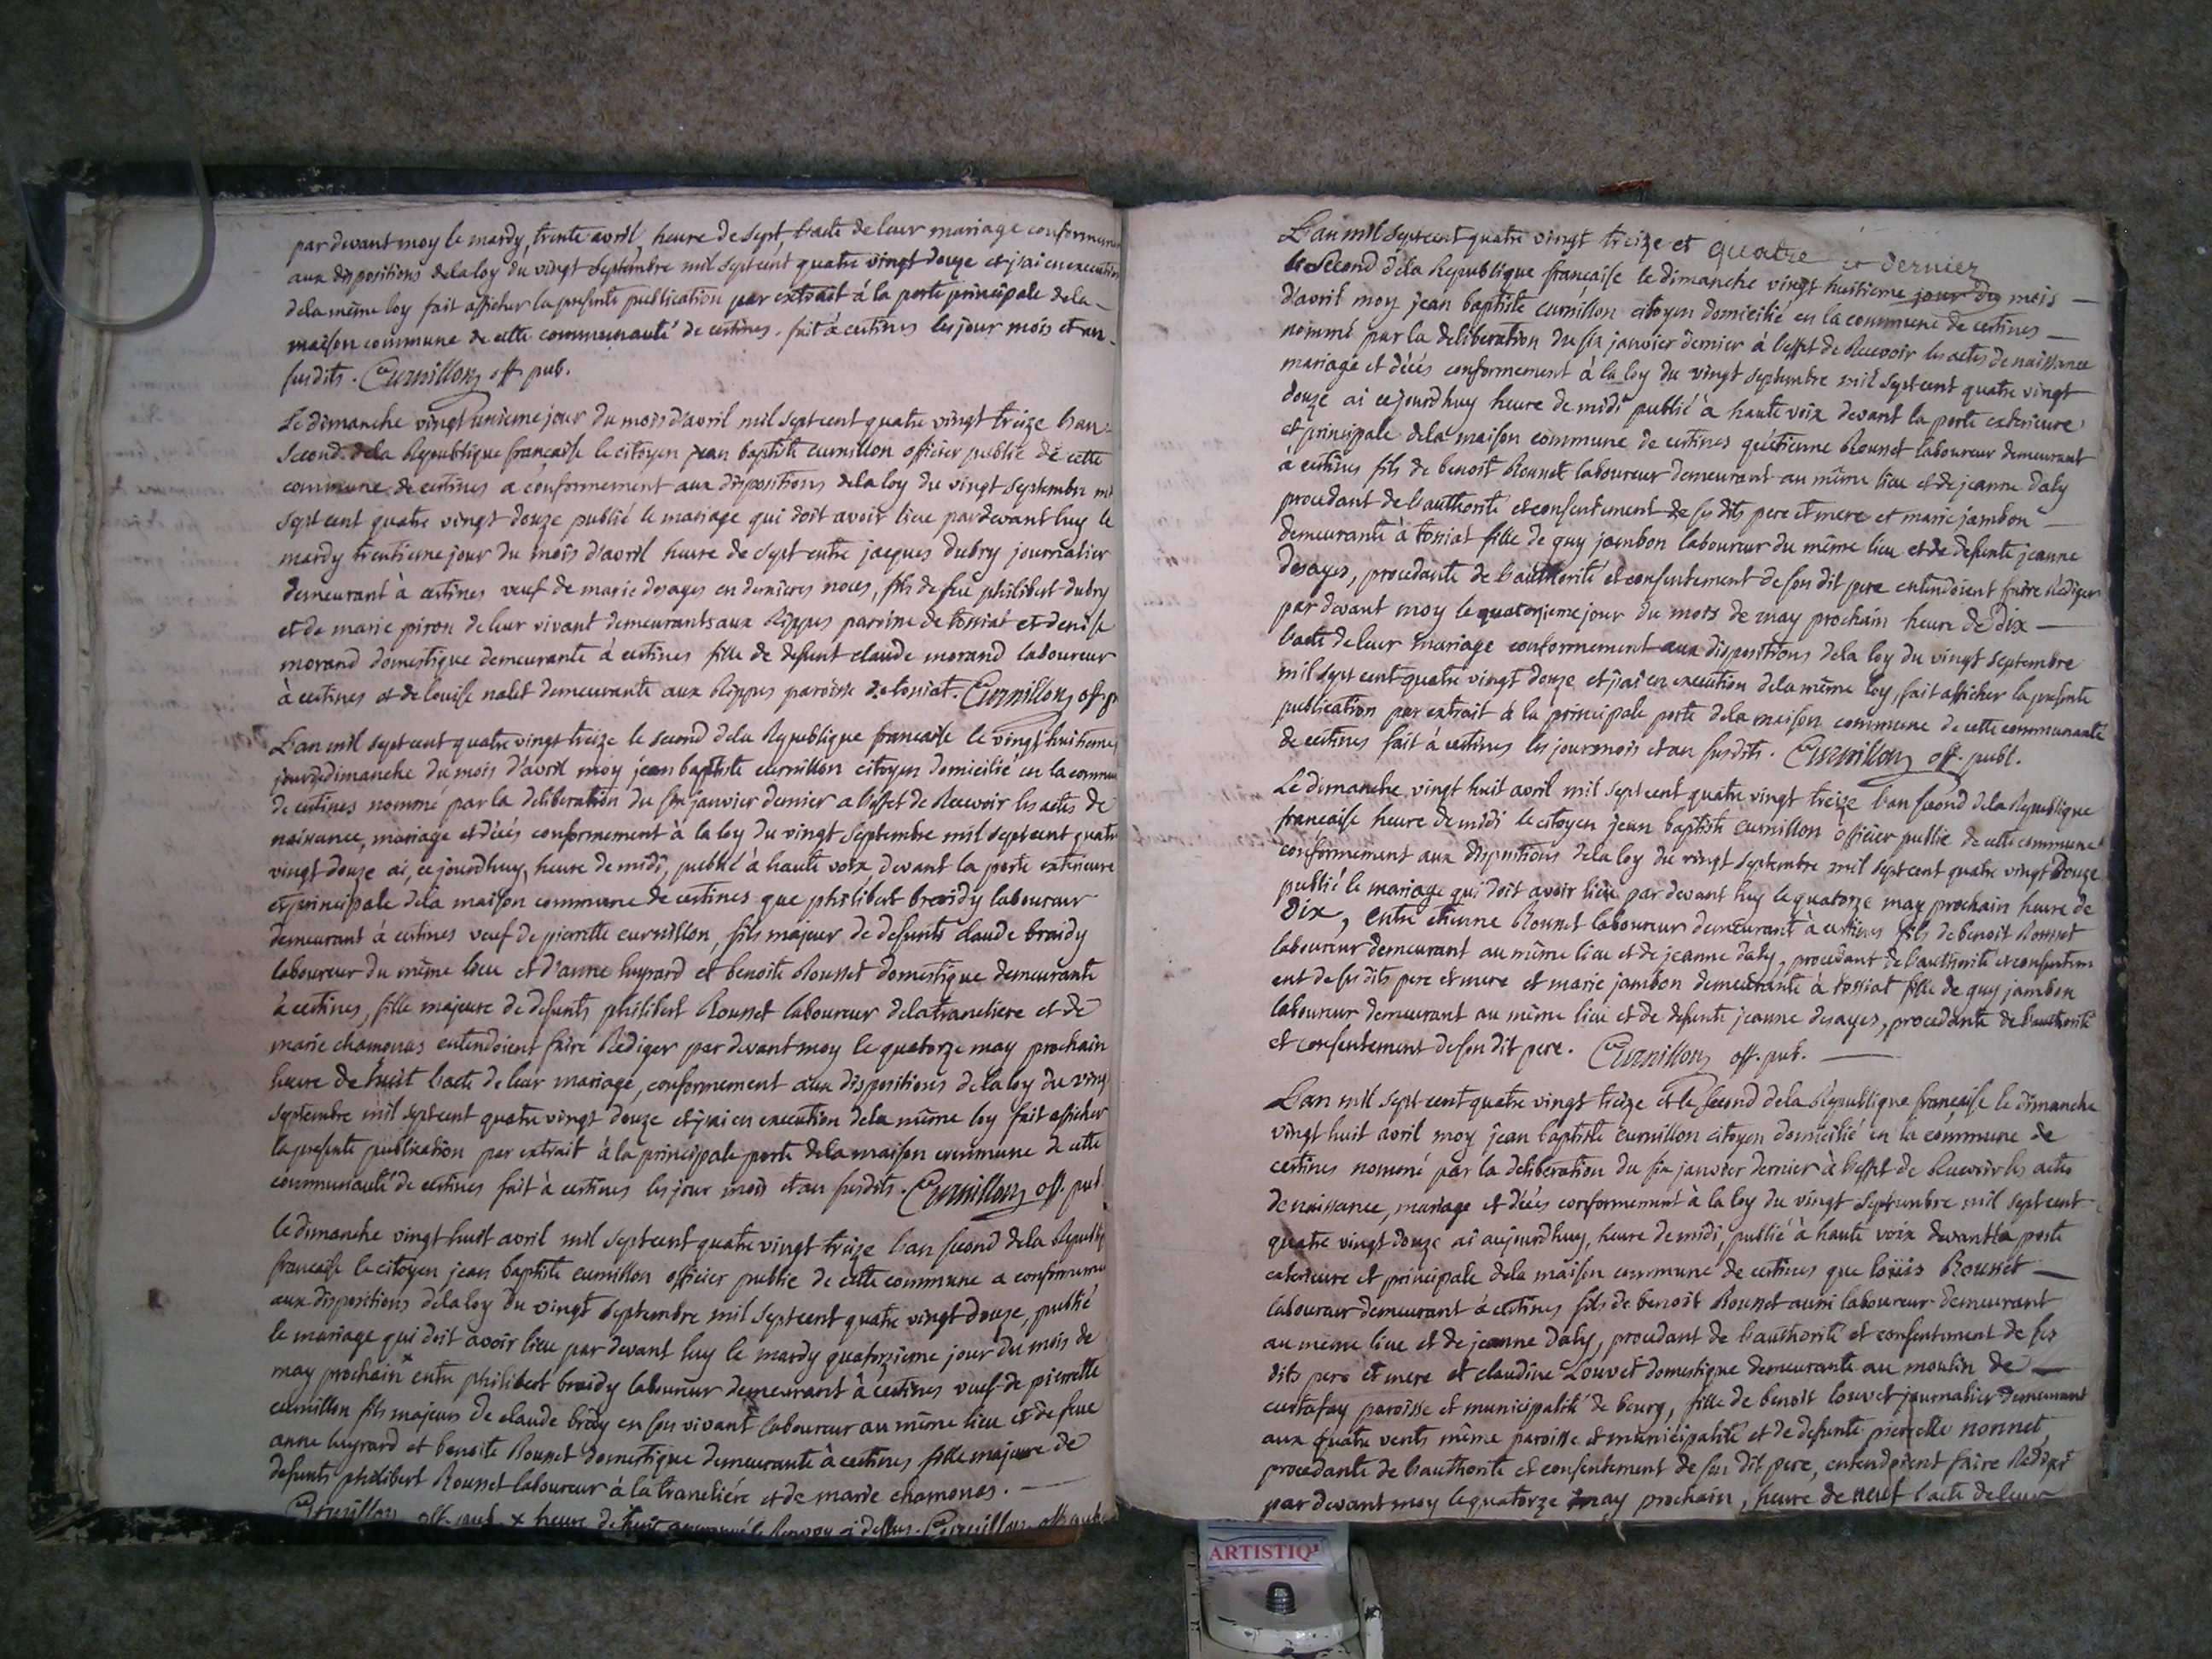 par devant moy le mardy, trente avril, heure de sept, l'acte de leur mariage conformement
aux dispositions de la loy du vingt septembre mil sept cent quatre vingt douze et j'ai en execution
de la même loy fait afficher la presente publication par extrait à la porte principale de la
maison commune de cette communauté de certines. fait à certines les jour mois et an
susdits. Curnillon off. pub.
Le dimanche vingt unieme jour du mois d'avril mil sept cent quatre vingt treize l'an
second de la Republique française le citoyen jean baptiste curnillon officier public de cette
commune de certines a conformement aux dispositions de la loy du vingt septembre mil
sept cent quatre vingt douze publié le mariage qui doit avoir lieu pardevant luy le
mardy trentieme jour du mois d'avril heure de sept entre jacques dubry journalier
demeurant à certines veuf de marie desayes en dernieres noces, fils de feu philibert dubry
et de marie piron de leur vivant demeurants aux Rippes paroisse de tossiat et denise
morand domestique demeurante à certines fille de defunt claude morand laboureur
à certines et de louise nalet demeurante aux Rippes paroisse de tossiat. Curnillon off. p
L'an mil sept cent quatre vingt treize le second de la Republique française le vingt huitieme
jour de dimanche du mois d'avril moy jean baptiste curnillon citoyen domicilié en la commune
de certines nommé par la deliberation du six janvier dernier a l'effet de Recevoir les actes de
naissance, mariage et décés conformement à la loy du vingt septembre mil sept cent quatre
vingt douze ai, ce jourdhuy, heure de midi, publié à haute voix, devant la porte exterieure
et principale de la maison commune de certines que philibert braidy laboureur
demeurant à certines veuf de pierrette curnillon, fils majeur de defunts claude braidy
laboureur du même lieu et d'anne luyrard et benoite Rousset domestique demeurante
à certines, fille majeure de defunts philibert Rousset laboureur de la traneliere et de
marie chamonas entendoient faire Rediger par devant moy le quatorze may prochain
heure de huit l'acte de leur mariage, conformement aux dispositions de la loy du vingt
septembre mil sept cent quatre vingt douze et j'ai en execution de la même loy fait afficher
la presente publication par extrait à la principale porte de la maison commune de cette
communauté de certines fait à certines les jour mois et an susdits. Curnillon off. pub
le dimanche vingt huit avril mil sept cent quatre vingt treize l'an second de la Republiq
française le citoyen jean baptiste curnillon officier public de cette commune a conformement
aux dispositions de la loy du vingt septembre mil sept cent quatre vingt douze, publié
le mariage qui doit avoir lieu par devant luy le mardy quatorzieme jour du mois de
may prochain x entre philibert braidy laboureur demeurant à certines veuf de pierrette
curnillon fils majeur de claude braidy en son vivant laboureur au même lieu et de feue
anne luyrard et benoite Rousset domestique demeurante à certines fille majeure de
defunts philibert Rousset laboureur à la traneliére et de marie chamonas.
Curnillon off. pub. x heure de huit le Renvoy ci dessus. Curnillon off. pub
L'an mil sept cent quatre vingt treize et quatre dernier
le Second de la Republique française le dimanche vingt huitieme jour du mois
d'avril moy jean baptiste curnillon citoyen domicilié en la commune de certines
nommé par la deliberation du six janvier dernier à l'effet de Recevoir les actes de naissance
mariage et décés conformement à la loy du vingt septembre mil sept cent quatre vingt
douze ai ce jourdhuy heure de midi publié à haute voix devant la porte exterieure
et principale de la maison commune de certines qu'étienne Rousset laboureur demeurant
à certines fils de benoit Rousset laboureur demeurant au même lieu et de jeanne daty
procedant de l'authorité et consentement de ses dits pere et mere et marie jambon
demeurante à tossiat fille de guy jambon laboureur du même lieu et de defunte jeanne
desayes, procedante de l'authorité et consentement de son dit pere entendoient faire Rediger
par devant moy le quatorzieme jour du mois de may prochain heure de dix
l'acte de leur mariage conformement aux dispositions de la loy du vingt septembre
mil sept cent quatre vingt douze et j'ai en execution de la même loy, fait afficher la presente
publication par extrait à la principale porte de la maison commune de cette communauté
de certines fait à certines les jour mois et an susdits. Curnillon off. publ.
Le dimanche vingt huit avril mil sept cent quatre vingt treize l'an second de la Republique
française heure de midi le citoyen jean baptiste curnillon officier public de cette commune
conformement aux dispositions de la loy du vingt septembre mil sept cent quatre vingt douze
publié le mariage qui doit avoir lieu par devant luy le quatorze may prochain heure de
dix, entre étienne Rousset laboureur demeurant à certines fils de benoit Rousset
laboureur demeurant au même lieu et de jeanne daty, procedant de l'authorité et consentem
ent de ses dits pere et mere et marie jambon demeurante à tossiat fille de guy jambon
laboureur demeurant au même lieu et de defunte jeanne desayes, procedante de l'authorité
et consentement de son dit pere. Curnillon off. pub.
L'an mil sept cent quatre vingt treize et le second de la Republique française le dimanche
vingt huit avril moy jean baptiste curnillon citoyen domicilié en la commune de
certines nommé par la deliberation du six janvier dernier à l'effet de Recevoir les actes
de naissance, mariage et décés conformement à la loy du vingt septembre mil sept cent
quatre vingt douze ai aujourdhuy, heure de midi, publié à haute voix devant la porte
exterieure et principale de la maison commune de certines que loüis Rousset
laboureur demeurant à certines fils de benoit Rousset aussi laboureur demeurant
au même lieu et de jeanne daty, procedant de l'authorité et consentement de ses
dits pere et mere et claudine Louvet domestique demeurante au moulin de
curtafay paroisse et municipalité de bourg, fille de benoit louvet journalier demeurant
aux quatre vents même paroisse et municipalité et de defunte pierrette nonnet,
procedante de l'authorité et consentement de son dit pere, entendoient faire Rediger
par devant moy le quatorze may prochain, heure de neuf l'acte de leur
ARTISTIQ